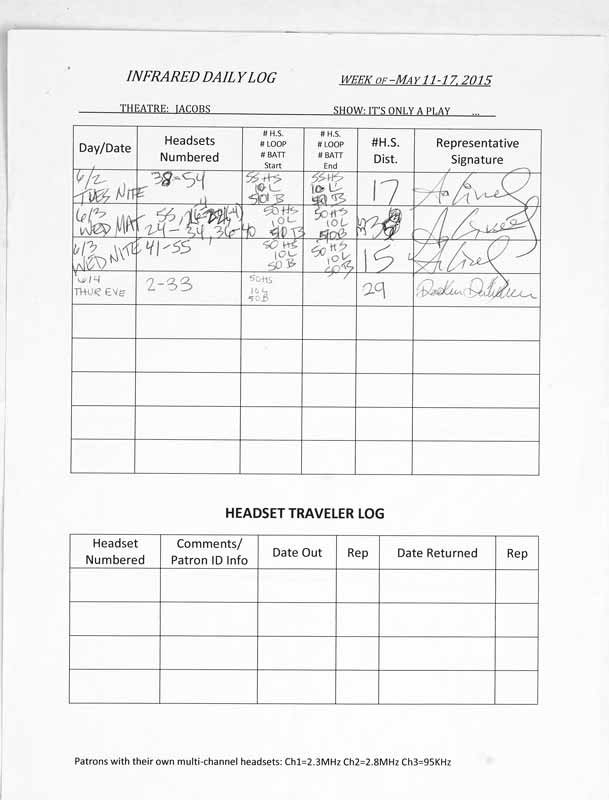 INFRARED DAILY LOG WEEK OF –MAY 11-17, 2015
THEATRE: JACOBS SHOW: IT'S ONLY A PLAY ...
Day/Date Headsets Numbered # H.S. # LOOP # BATT Start # H.S. # LOOP # BATT End #H.S. Dist. Representative Signature
6/2 TUES NITE 38-54 55HS 10L 50B 55HS 10L 50B 17
6/3 WED MAT 55, 24-34, 36-40 50HS 10L 50B 50HS 10L 50B
6/3 WED NITE 41-55 50HS 10L 50B 50HS 10L 50B 15
6/4 THUR EVE 2-33 50HS 10L 50B 29
HEADSET TRAVELER LOG
Headset Numbered Comments/ Patron ID Info Date Out Rep Date Returned Rep
Patrons with their own multi-channel headsets: Ch1=2.3MHz Ch2=2.8MHz Ch3=95KHz